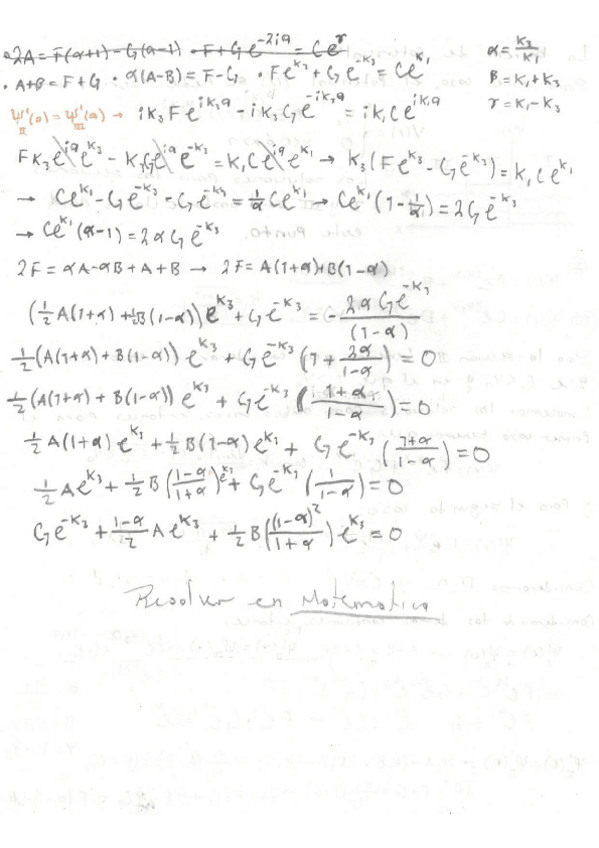 2A = F(α+1) - G(α-1) · F + G e^{-2ia} = C e^{r} α = K₃/K₁
· A+B = F+G · α(A-B) = F-G · F e^{K₃} + G e^{-K₃} = C e^{K₁} B = K₁+K₃
Ψ'_{II}(a) = Ψ'_{III}(a) → i K₃ F e^{iK₃a} - i K₃ G e^{-iK₃a} = i K₁ C e^{iK₁a} r = K₁-K₃
F K₃ e^{ia} e^{K₃} - K₃ G e^{ia} e^{-K₃} = K₁ C e^{ia} e^{K₁} → K₃(F e^{K₃} - G e^{-K₃}) = K₁ C e^{K₁}
→ C e^{K₁} - G e^{-K₃} - G e^{-K₃} = 1/α C e^{K₁} → C e^{K₁}(1 - 1/α) = 2G e^{-K₃}
→ C e^{K₁}(α-1) = 2αG e^{-K₃}
2F = αA - αB + A + B → 2F = A(1+α) + B(1-α)
(½A(1+α) + ½B(1-α)) e^{K₃} + G e^{-K₃} = - 2αG e^{-K₃} / (1-α)
½(A(1+α) + B(1-α)) e^{K₃} + G e^{-K₃}(1 + 2α/(1-α)) = 0
½(A(1+α) + B(1-α)) e^{K₃} + G e^{-K₃}( /(1-α)) = 0
½A(1+α) e^{K₃} + ½B(1-α) e^{K₃} + G e^{-K₃}((1+α)/(1-α)) = 0
½A e^{K₃} + ½B((1-α)/(1+α)) e^{K₃} + G e^{-K₃}(1/(1-α)) = 0
G e^{-K₃} + (1-α)/2 A e^{K₃} + ½B((1-α)²/(1+α)) e^{K₃} = 0
Resolver en Matematica